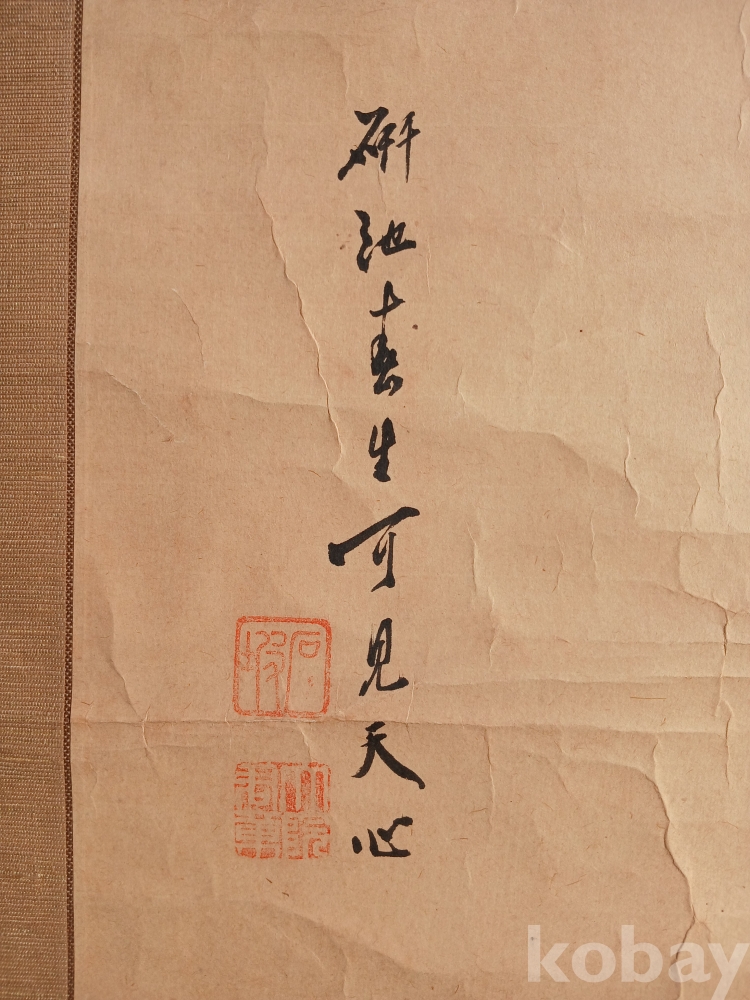 硏池春生可見天心
石坡
kobay